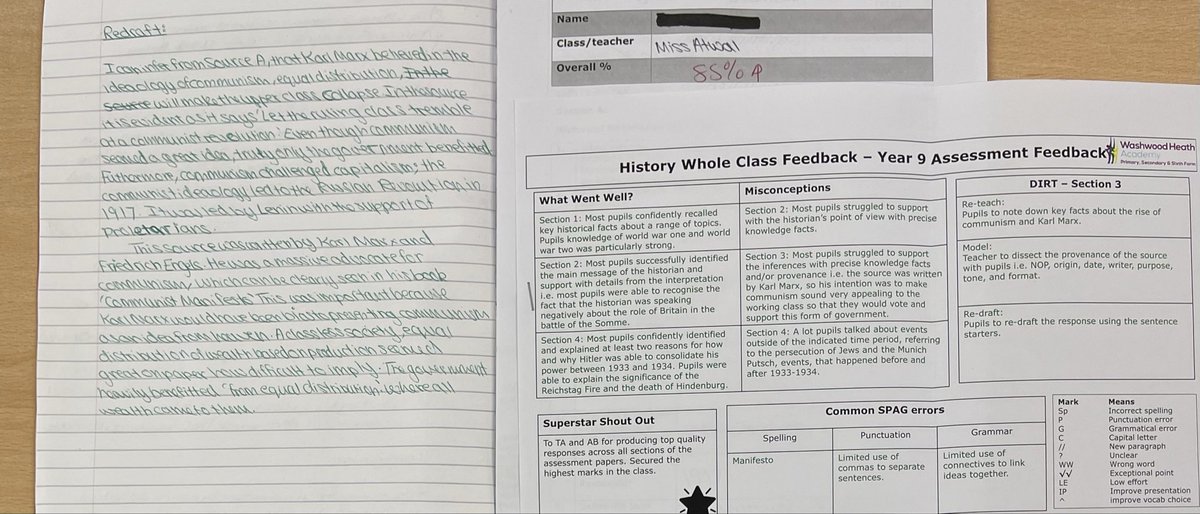 Redraft:
I can infer from Source A, that Karl Marx believed in the
ideology of communism, equal distribution, In the
source will make the upper class Collapse. In the source
it is evident as it says 'Let the ruling class tremble
at a communist revolution.' Even though communism
seemed a great idea, truly only the government benefitted.
Futhermore, communism challenged capitalism; the
communist ideology led to the Russian Revolution in
1917. It was led by Lenin with the support of
proletarians.
This source was written by Karl Marx and
Friedrich Engls. He was a massive advocate for
communism, which can be seen in his book
'Communist Manifesto'. This was important because
Karl Marx would have been bias to presenting communism
as an idea from heaven. A classless society, equal
distribution of wealth based on production seems
great on paper, how difficult to imply. The government
heavily benefitted 'from equal distribution' where all
wealth came to them.
Name
Class/teacher Miss Atwal
Overall % 85%
History Whole Class Feedback – Year 9 Assessment Feedback
Washwood Heath
Academy
Primary, Secondary & Sixth Form
What Went Well?
Section 1: Most pupils confidently recalled
key historical facts about a range of topics.
Pupils knowledge of world war one and world
war two was particularly strong.
Section 2: Most pupils successfully identified
the main message of the historian and
support with details from the interpretation
i.e. most pupils were able to recognise the
fact that the historian was speaking
negatively about the role of Britain in the
battle of the Somme.
Section 4: Most pupils confidently identified
and explained at least two reasons for how
and why Hitler was able to consolidate his
power between 1933 and 1934. Pupils were
able to explain the significance of the
Reichstag Fire and the death of Hindenburg.
Misconceptions
Section 2: Most pupils struggled to support
with the historian's point of view with precise
knowledge facts.
Section 3: Most pupils struggled to support
the inferences with precise knowledge facts
and/or provenance i.e. the source was written
by Karl Marx, so his intention was to make
communism sound very appealing to the
working class so that they would vote and
support this form of government.
Section 4: A lot pupils talked about events
outside of the indicated time period, referring
to the persecution of Jews and the Munich
Putsch, events, that happened before and
after 1933-1934.
DIRT – Section 3
Re-teach:
Pupils to note down key facts about the rise of
communism and Karl Marx.
Model:
Teacher to dissect the provenance of the source
with pupils i.e. NOP, origin, date, writer, purpose,
tone, and format.
Re-draft:
Pupils to re-draft the response using the sentence
starters.
Superstar Shout Out
To TA and AB for producing top quality
responses across all sections of the
assessment papers. Secured the
highest marks in the class.
Common SPAG errors
Spelling Punctuation Grammar
Manifesto
Limited use of
commas to separate
sentences.
Limited use of
connectives to link
ideas together.
Mark Means
Sp Incorrect spelling
P Punctuation error
G Grammatical error
C Capital letter
// New paragraph
? Unclear
WW Wrong word
√√ Exceptional point
LE Low effort
IP Improve presentation
^ improve vocab choice